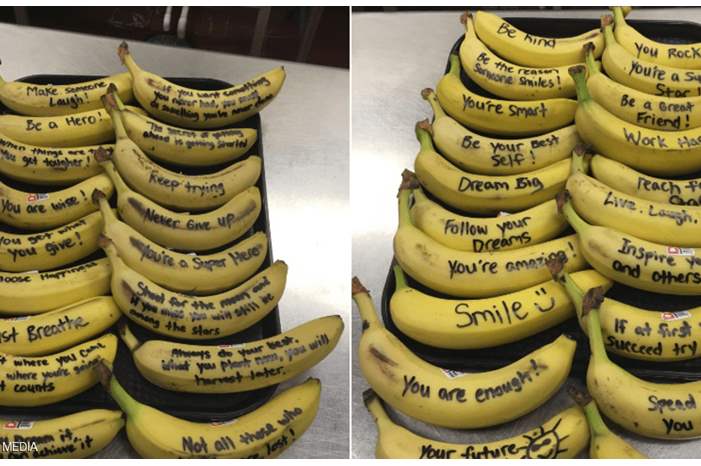 Make someone
Laugh!
Be a Hero!
when things are
you get tougher!
You are wise!
You get what
you give!
Choose Happiness
Just Breathe
where you come
where you're going
t counts
achieve it
MEDIA
If you want something
you never had, you must
do something you've never done
The secret of getting
ahead is getting started
Keep trying
Never Give up
You're a Super Hero
Shoot for the moon even
if you miss you will still be
among the stars
Always do your best.
What you plant now, you will
harvest later.
Not all those who
are lost!
Be Kind
Be the reason
Someone Smiles!
You're Smart
Be your Best
Self!
Dream Big
Follow your
Dreams
You're amazing!
Smile
You are enough!
Your future
You Rock
You're a Su
Star
Be a Great
Friend!
Work Ha
reach f
Live. Laugh.
Inspire yo
and others
If at first
Succeed try
Spread
You